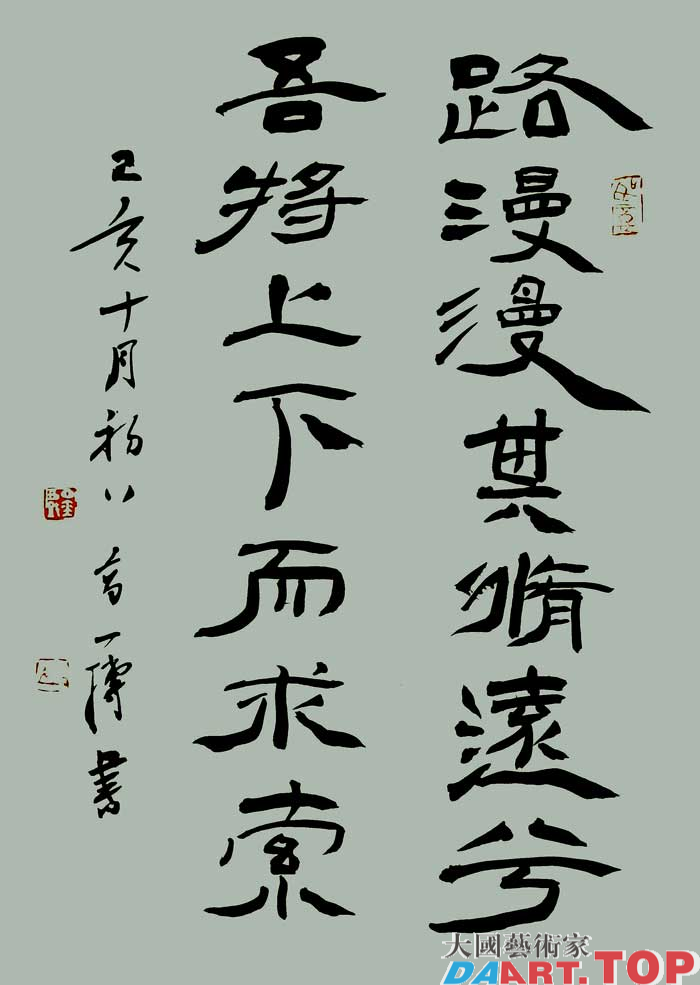 路漫漫其脩遠兮
吾将上下而求索
己亥十月初八 高一書
大國藝術家
DAART.TOP